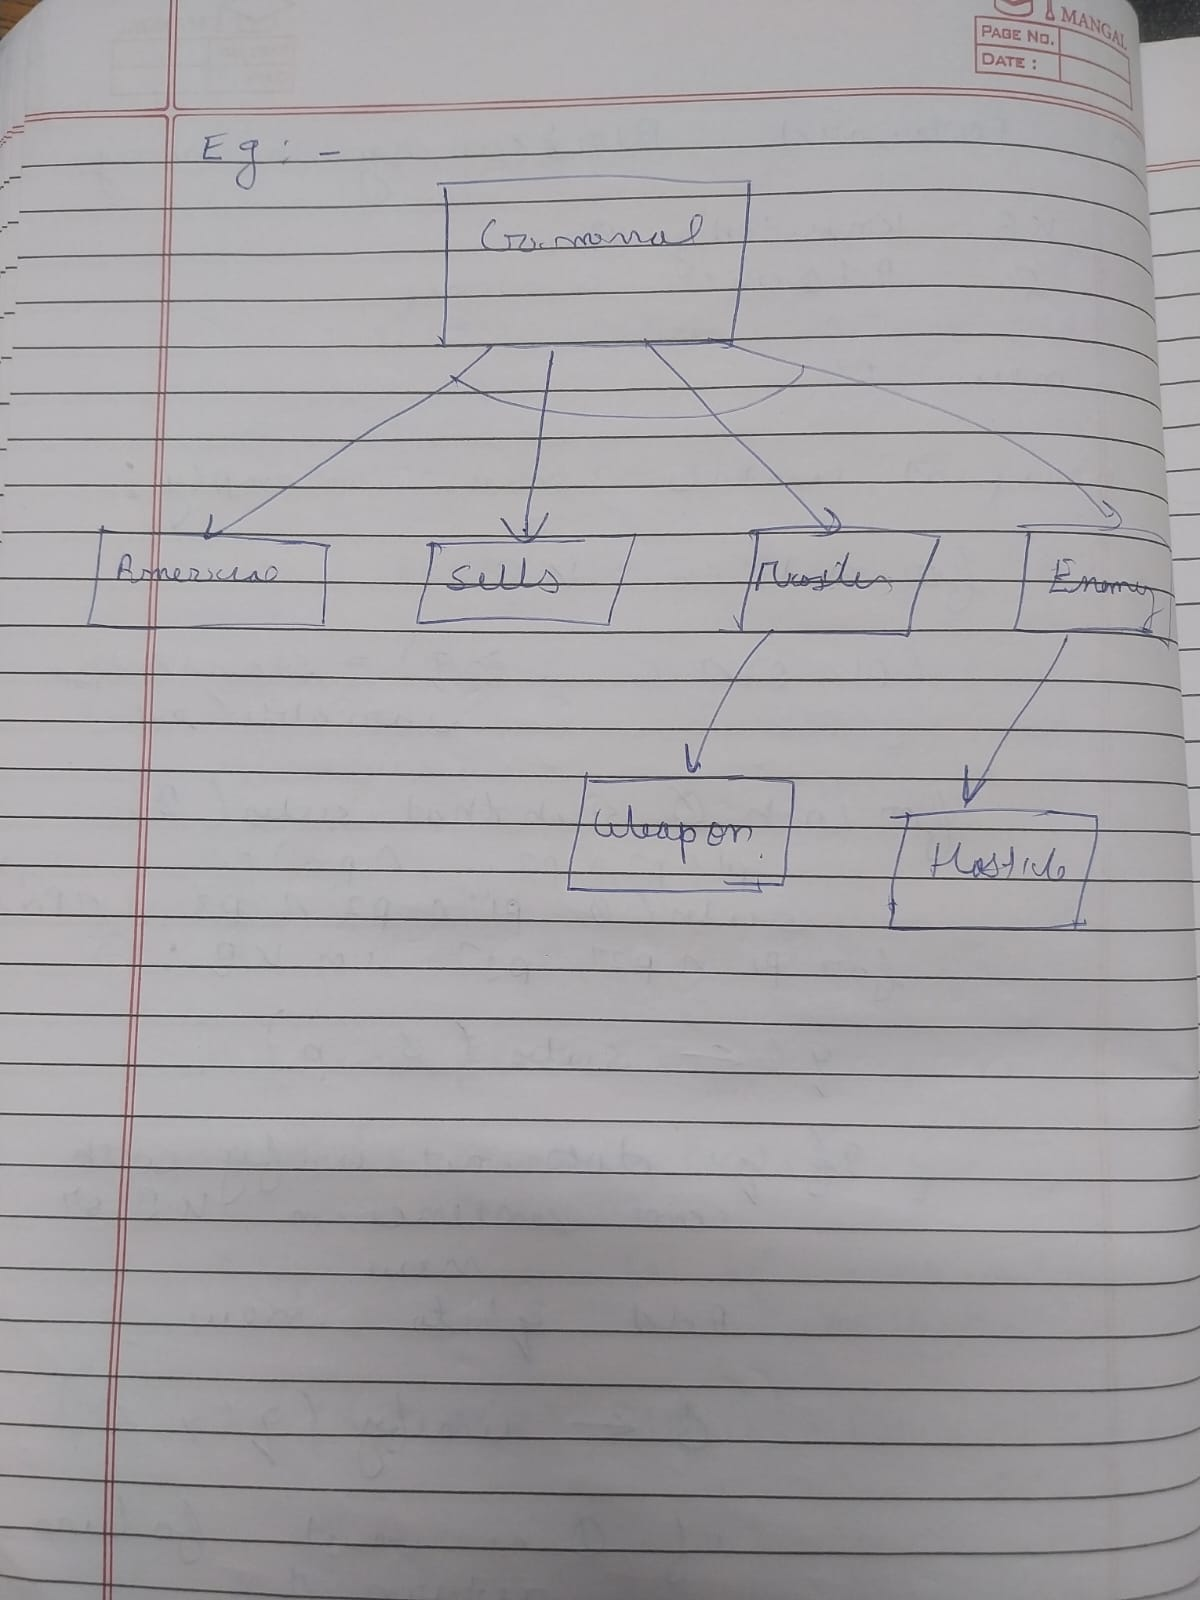 MANGAL
PAGE NO.
DATE :
Eg : -
Criminal
American
Sells
Enemy
Weapon.
Hostile